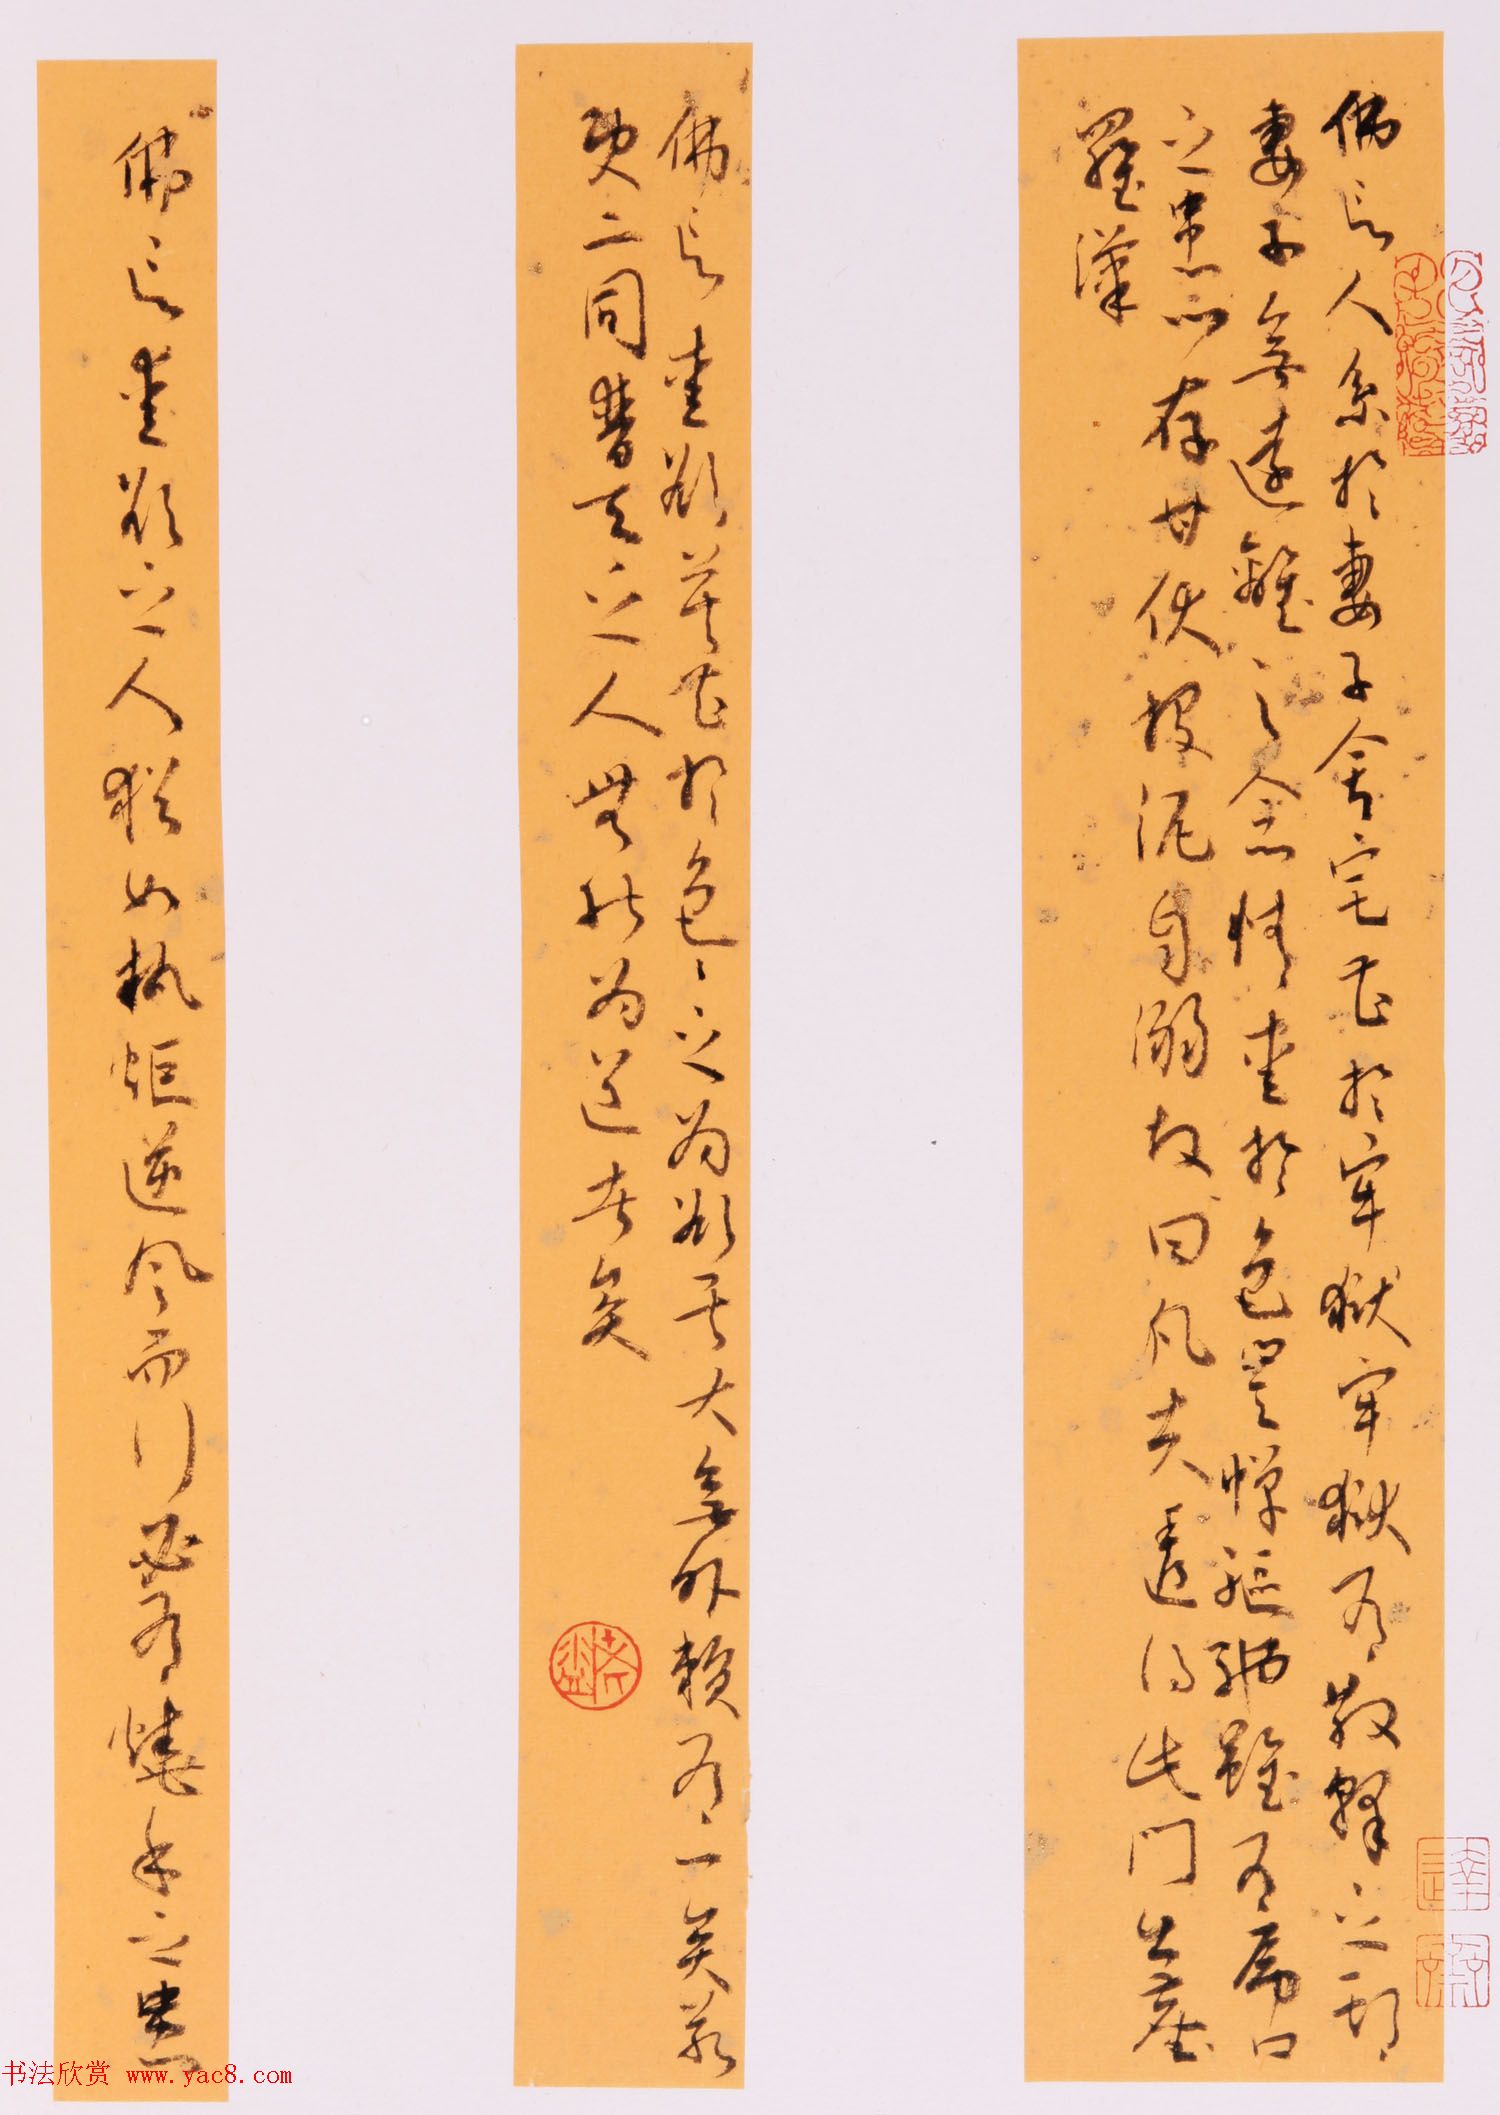 佛言人系於妻子舍宅甚於牢獄牢獄有散釋之期
妻子無遠離之念情愛於色豈憚驅馳雖有虎口
之患心存甘伏投泥自溺故曰凡夫透得此門出塵
羅漢
佛言愛欲莫甚於色〻之為欲其大無外賴有一矣若
使二同普天之人無能為道者矣
佛言愛欲之人猶如執炬逆風而行必有燒手之患
书法欣赏 www.yac8.com